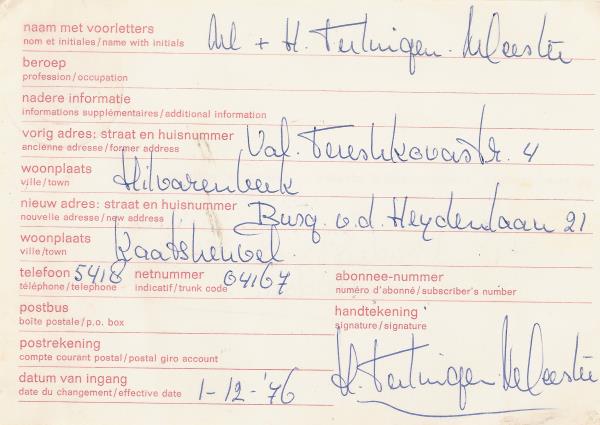 naam met voorletters M + H. Teuningen-Meestée
nom et initiales/name with initials
beroep
profession/occupation
nadere informatie
informations supplémentaires/additional information
vorig adres: straat en huisnummer Val. Tereshkovastr. 4
ancienne adresse/former address
woonplaats Hilvarenbeek
ville/town
nieuw adres: straat en huisnummer Burg. v.d. Heydenlaan 21
nouvelle adresse/new address
woonplaats Kaatsheuvel
ville/town
telefoon 5418 netnummer 04167 abonnee-nummer
téléphone/telephone indicatif/trunk code numéro d'abonné/subscriber's number
postbus handtekening
boîte postale/p.o. box signature/signature
postrekening
compte courant postal/postal giro account
datum van ingang 1-12-'76
date du changement/effective date